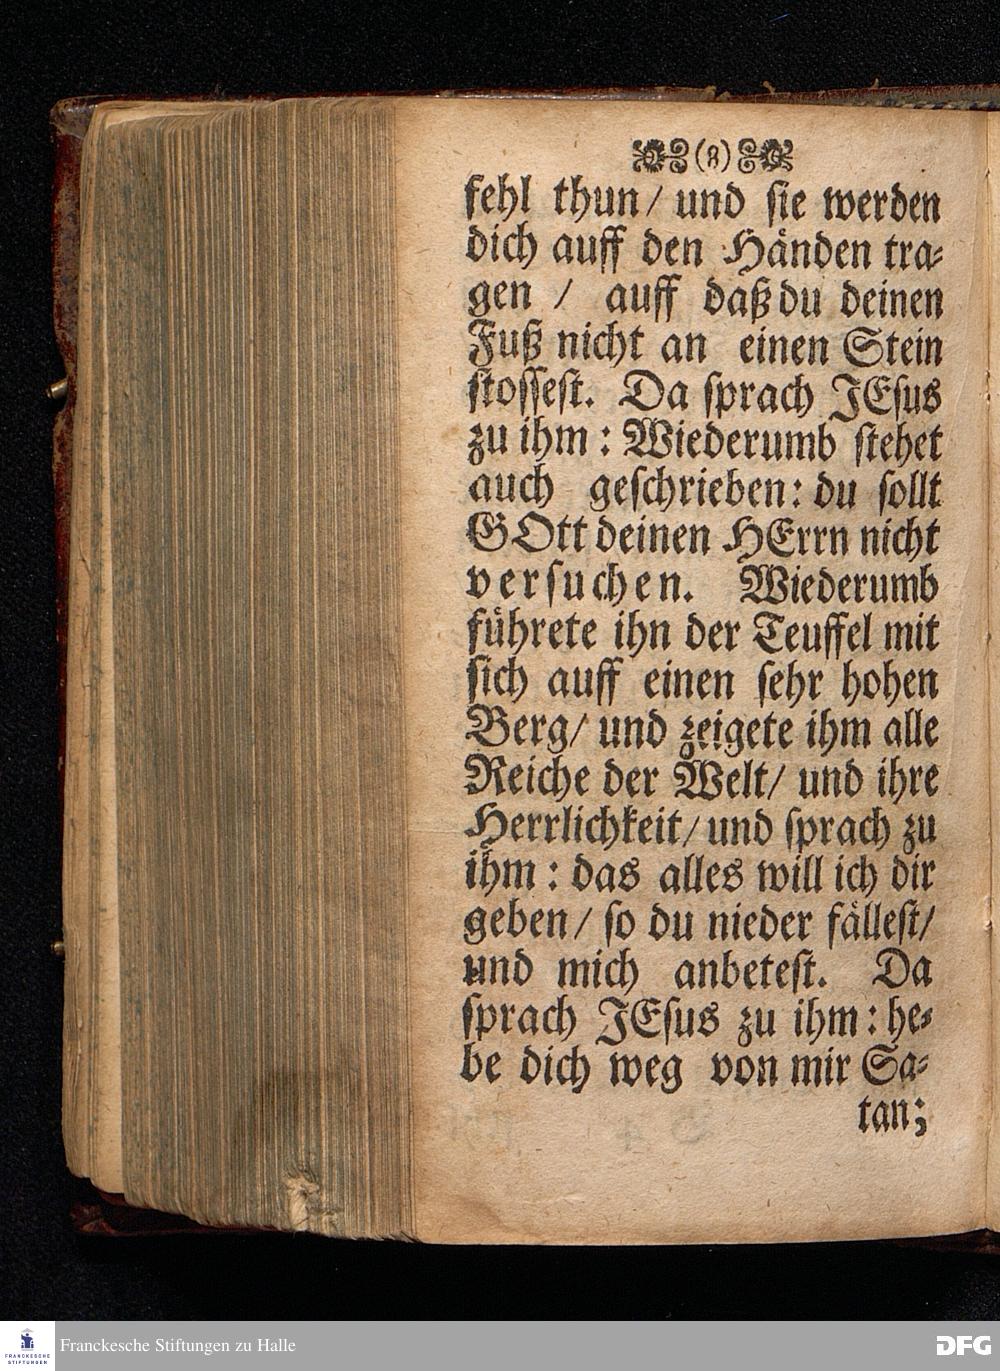 (8)
fehl thun/ und sie werden
dich auff den Händen tra-
gen / auff daß du deinen
Fuß nicht an einen Stein
stossest. Da sprach JEsus
zu ihm: Wiederumb stehet
auch geschrieben: du sollt
GOtt deinen HErrn nicht
versuchen. Wiederumb
führete ihn der Teuffel mit
sich auff einen sehr hohen
Berg/ und zeigete ihm alle
Reiche der Welt/ und ihre
Herrlichkeit/ und sprach zu
ihm: das alles will ich dir
geben/ so du nieder fällest/
und mich anbetest. Da
sprach JEsus zu ihm: he-
be dich weg von mir Sa-
tan;
FRANCKESCHE STIFTUNGEN
Franckesche Stiftungen zu Halle
DFG